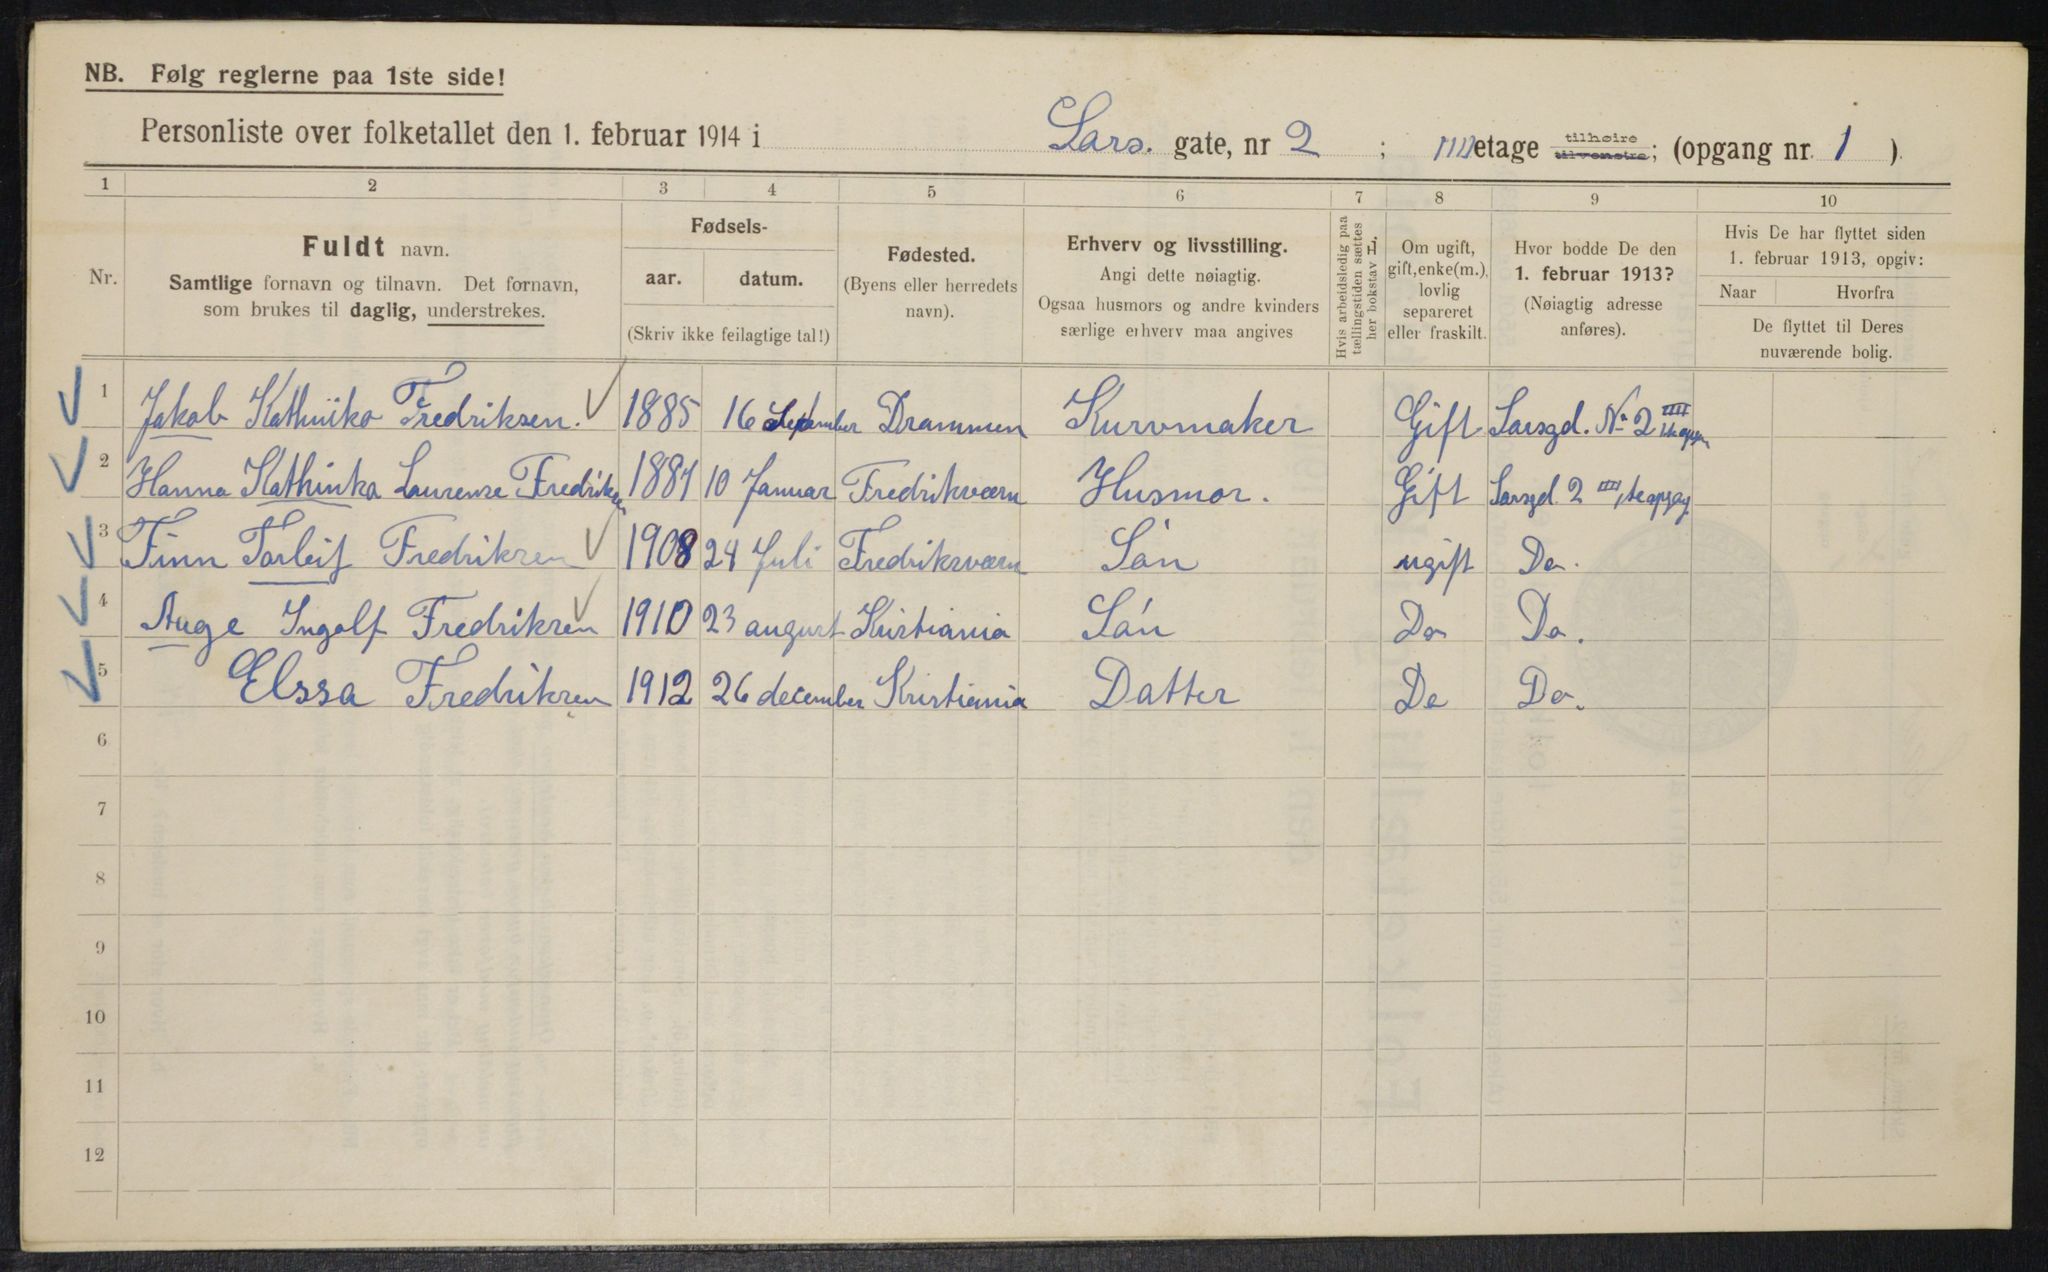 NB. Følg reglerne paa 1ste side!
Personliste over folketallet den 1. februar 1914 i Lars. gate, nr 2 ; IIII etage tilhøire tilvenstre; (opgang nr. 1 ).
1 2 3 4 5 6 7 8 9 10
Nr.
Fuldt navn.
Samtlige fornavn og tilnavn. Det fornavn,
som brukes til daglig, understrekes.
Fødsels-
aar. datum.
(Skriv ikke feilagtige tal!)
Fødested.
(Byens eller herredets
navn).
Erhverv og livsstilling.
Angi dette nøiagtig.
Ogsaa husmors og andre kvinders
særlige erhverv maa angives
Hvis arbeidsledig paa
tællingstiden sættes
her bokstav L.
Om ugift,
gift, enke(m.),
lovlig
separeret
eller fraskilt.
Hvor bodde De den
1. februar 1913?
(Nøiagtig adresse
anføres).
Hvis De har flyttet siden
1. februar 1913, opgiv:
Naar Hvorfra
De flyttet til Deres
nuværende bolig.
1 Jakob Kathinka Fredriksen. 1885 16 September Drammen Kurvmaker Gift Larsgd. No 2 IIII
2 Hanna Kathinka Laurense Fredriksen 1887 10 Januar Fredriksværn Husmor. Gift Larsgd. 2 IIII
3 Finn Torleif Fredriksen 1908 24 Juli Fredriksværn Són ugift Do.
4 Auge Ingolf Fredriksen 1910 23 august Kristiania Són Do Do.
5 Elssa Fredriksen 1912 26 december Kristiania Datter Do Do.
6
7
8
9
10
11
12